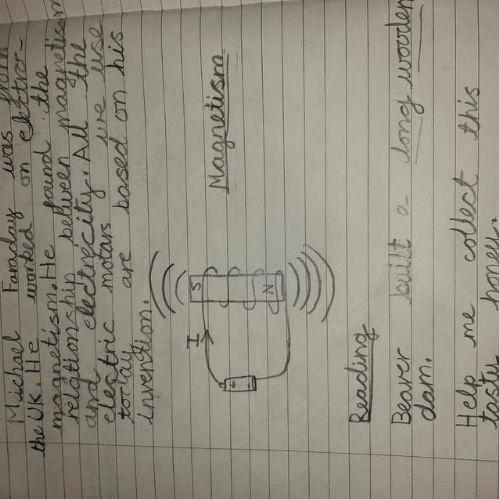 Michael Faraday was from
the UK. He worked on elctro-
magnetism. He found the
relationship between magnetism
and electricity. All the
electric motars we use
today are based on his
invention.
I
S
N
+
-
Magnetism
Reading
Beaver built a long wooden
dam.
Help me collect this
tasty honey.